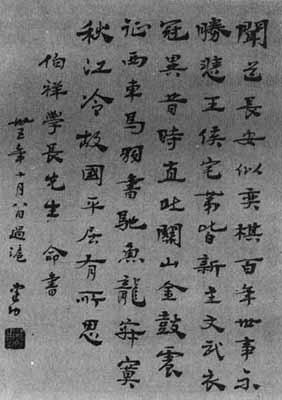 聞道長安似奕棋百年世事不
勝悲王侯宅第皆新主文武衣
冠異昔時直北關山金鼓震
征西車馬羽書馳魚龍寂寞
秋江冷故國平居有所思
伯祥學長先生 命書
卅五年十月八日過滬